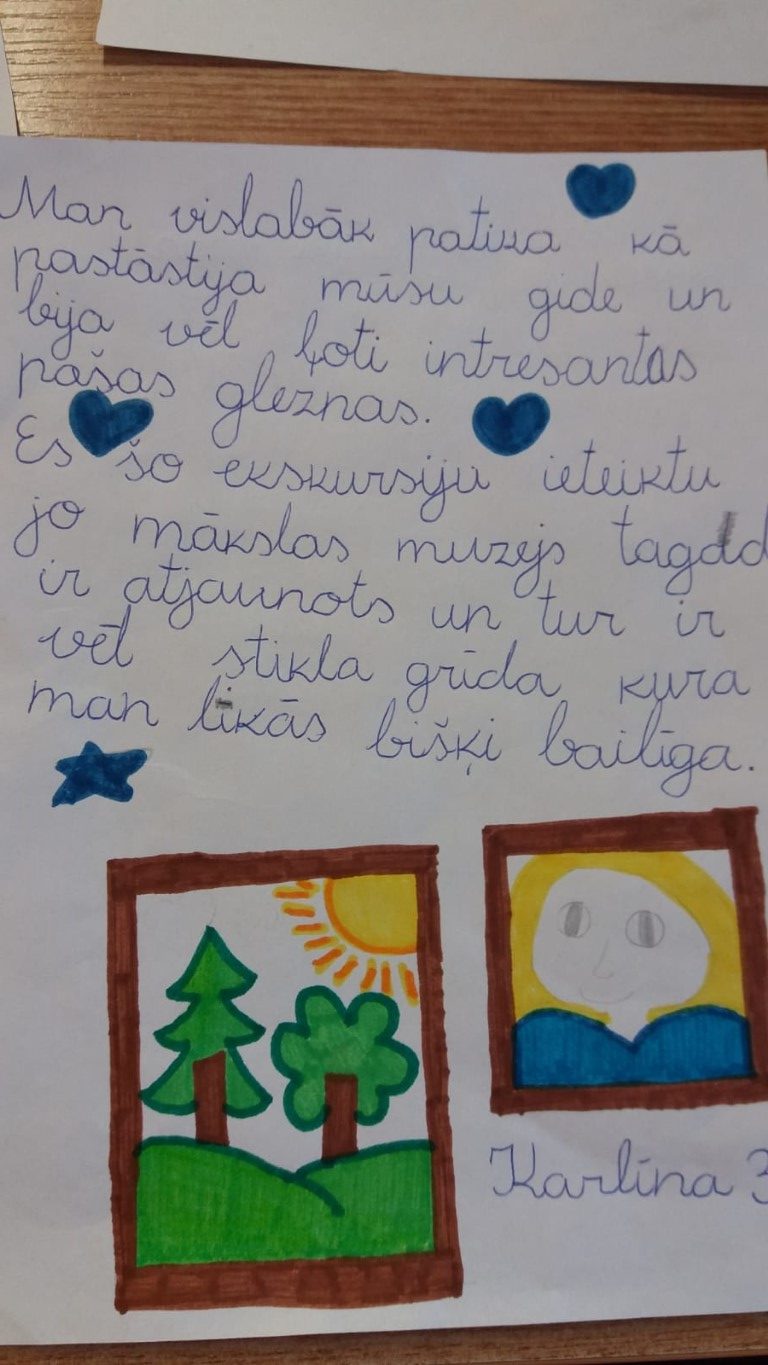 Man vislabāk patika kā
pastāstija mūsu gide un
bija vēl ļoti intresantas
pašas gleznas.
Es šo ekskursiju ieteiktu
jo mākslas muzejs tagad
ir atjaunots un tur ir
vēl stikla grīda kura
man likās bišķi bailīga.
Karlīna 3